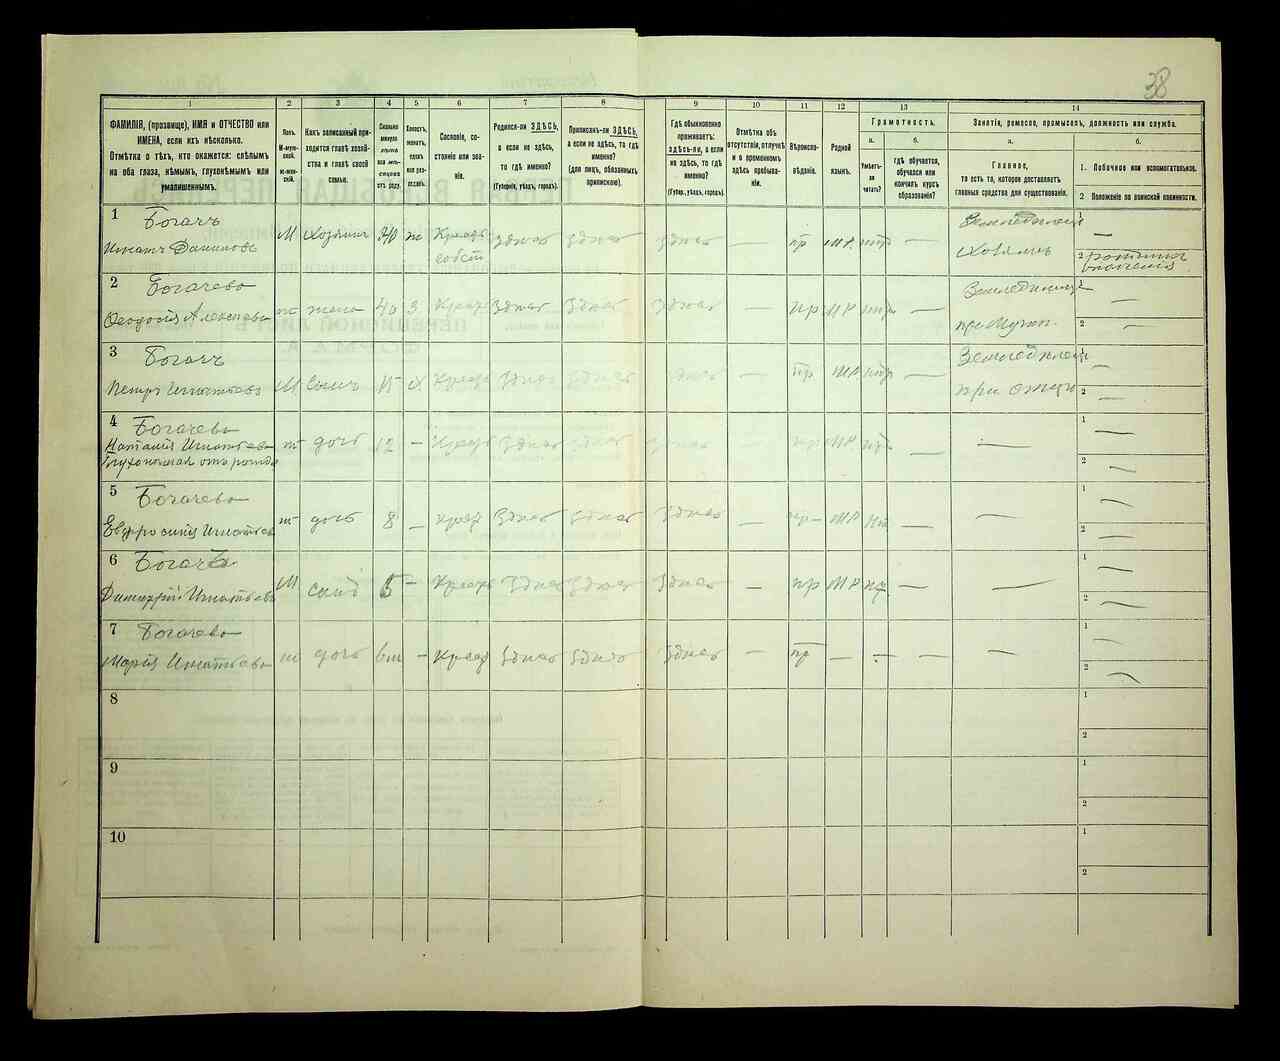 38
1 2 3 4 5 6 7 8 9 10 11 12 13 14
ФАМИЛІЯ, (прозвище), ИМЯ и ОТЧЕСТВО или
ИМЕНА, если ихъ нѣсколько.
Отмѣтка о тѣхъ, кто окажется: слѣпымъ
на оба глаза, нѣмымъ, глухонѣмымъ или
умалишеннымъ.
Полъ.
М-мужской.
Ж-женскій.
Какъ записанный приходится
главѣ хозяйства
и главѣ своей
семьи.
Сколько
минуло
лѣтъ
или мѣсяцевъ
отъ роду.
Холостъ,
женатъ,
вдовъ
или разведенъ.
Сословіе, состояніе
или званіе.
Родился-ли ЗДѢСЬ,
а если не здѣсь,
то гдѣ именно?
(Губернія, уѣздъ, городъ).
Приписанъ-ли ЗДѢСЬ,
а если не здѣсь, то гдѣ
именно?
(для лицъ, обязанныхъ
припискою).
Гдѣ обыкновенно
проживаетъ:
здѣсь-ли, а если
не здѣсь, то гдѣ
именно?
(Губер., уѣздъ, городъ).
Отмѣтка объ
отсутствіи, отлучкѣ
и о временномъ
здѣсь пребываніи.
Вѣроисповѣданіе.
Родной
языкъ.
Грамотность.
а. б.
Умѣетъ-ли
читать?
гдѣ обучается,
обучался или
кончилъ курсъ
образованія?
Занятіе, ремесло, промыселъ, должность или служба.
а. б.
Главное,
то есть то, которое доставляетъ
главныя средства для существованія.
1. Побочное или вспомогательное.
2. Положеніе по воинской повинности.
1 Богачъ
М Хозяинъ 40 ж Крест здѣсь здѣсь здѣсь — пр МР нтр — Земледѣлецъ 1 —
собств хозяинъ 2
2 Богачева
Ѳеодосія Алексѣева ж жена 40 З Крест Здѣсь Здѣсь Здѣсь — пр МР нтр — 1 —
при мужѣ 2 —
3 Богачъ
Петръ Игнатьевъ М сынъ 15 х Крест Здѣсь Здѣсь Здѣсь пр МР нтр — Земледѣлецъ 1 —
при отцѣ 2 —
4 Богачева
Наталія Игнатьева ж дочь 12 — Крест Здѣсь Здѣсь Здѣсь пр МР нт — — 1 —
Глухонѣмая отъ рожд 2 —
5 Богачева
Евфросинія Игнатьева ж дочь 8 — крест Здѣсь Здѣсь Здѣсь — пр МР нт — — 1 —
2 —
6 Богачъ
Димитрій Игнатьевъ М сынъ 5 — Крест Здѣсь Здѣсь Здѣсь — пр МР нт — — 1 —
2 —
7 Богачева
Марія Игнатьева ж дочь 6м — Крест Здѣсь Здѣсь Здѣсь — пр — — — — 1 —
2 —
8 1
2
9 1
2
10 1
2